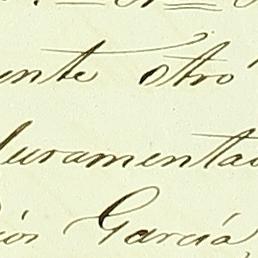 ente otro
luramentad
ios García